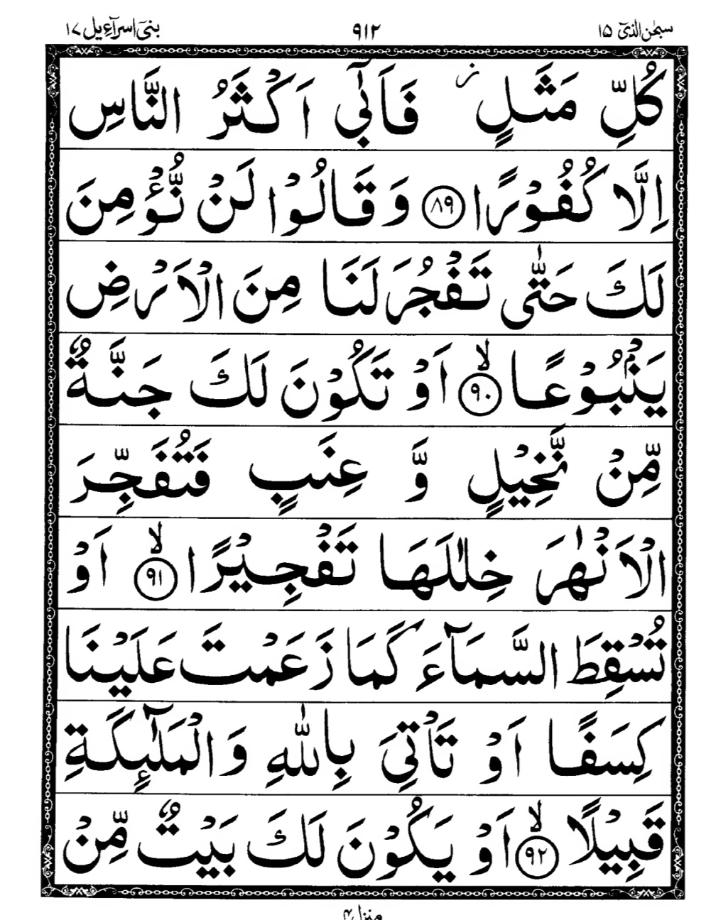 سبحٰن الذیٓ ۱۵ ۹۱۲ بنیٓ اسرآءیل ۱۷
كُلِّ مَثَلٍ ۡز فَاَبٰٓی اَكْثَرُ النَّاسِ
اِلَّا كُفُوْرًا ﴿۸۹﴾ وَ قَالُوْا لَنْ نُّؤْمِنَ
لَكَ حَتّٰی تَفْجُرَ لَنَا مِنَ الْاَرْضِ
یَنْۢبُوْعًا ﴿ۙ۹۰﴾ اَوْ تَكُوْنَ لَكَ جَنَّةٌ
مِّنْ نَّخِیْلٍ وَّ عِنَبٍ فَتُفَجِّرَ
الْاَنْهٰرَ خِلٰلَهَا تَفْجِیْرًا ﴿ۙ۹۱﴾ اَوْ
تُسْقِطَ السَّمَآءَ كَمَا زَعَمْتَ عَلَیْنَا
كِسَفًا اَوْ تَاْتِیَ بِاللّٰهِ وَالْمَلٰٓىِٕكَةِ
قَبِیْلًا ﴿ۙ۹۲﴾ اَوْ یَكُوْنَ لَكَ بَیْتٌ مِّنْ
منزل ۴